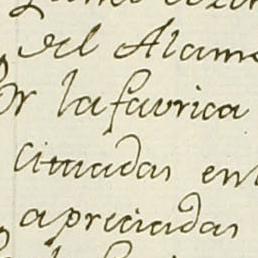 del Alame
or la favrica
cituadas en
apreciadas